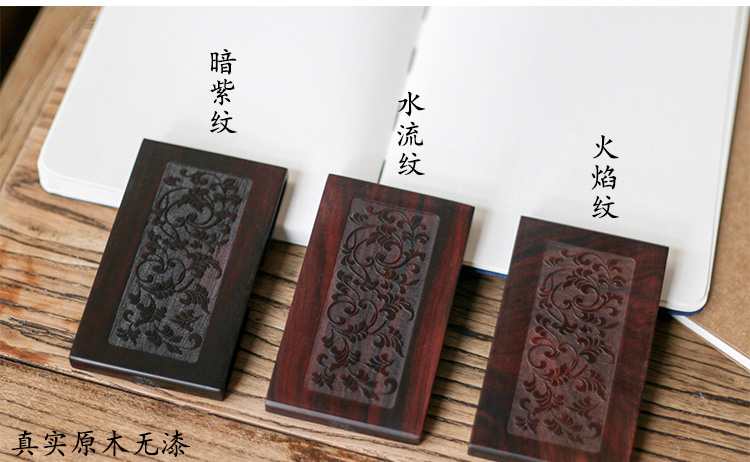 暗紫纹
水流纹
火焰纹
真实原木无漆